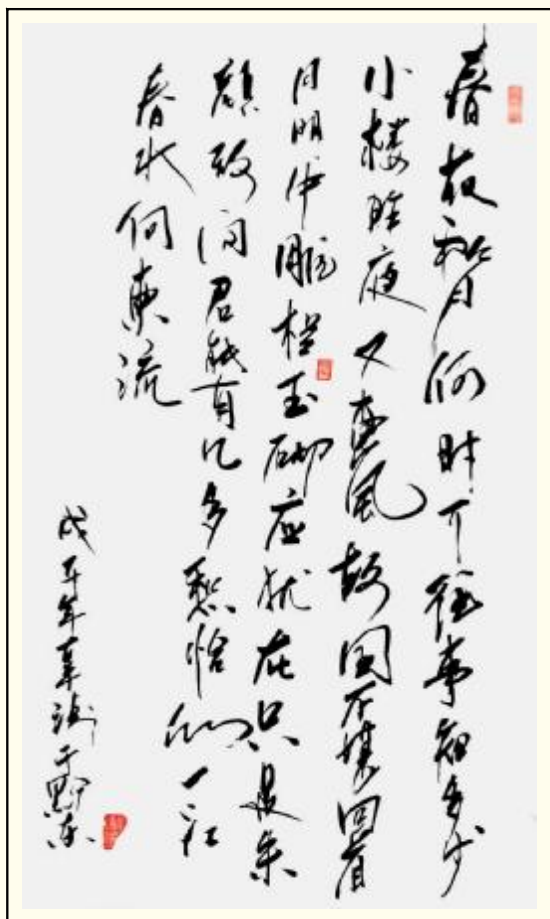 春花秋月何时了往事知多少
小楼昨夜又東风故国不堪回首
月明中雕栏玉砌应犹在只是朱
颜改问君能有几多愁恰似一江
春水向東流
戊子年于黔东